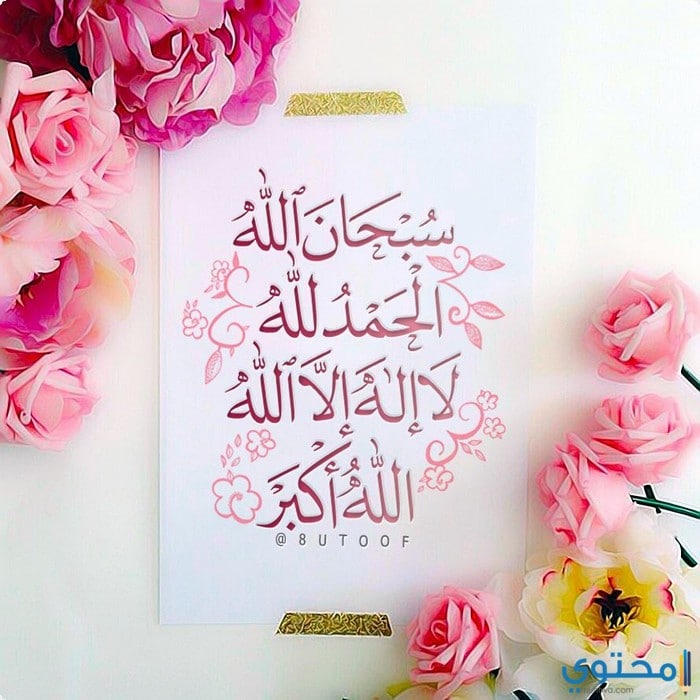 سُبْحَانَ ٱللّٰهُ
الْحَمْدُ لِلّٰهُ
لَا إِلٰهَ إِلَّا ٱللّٰهُ
اللّٰهُ أَكْبَرَ
@8UTOOF
محتوى